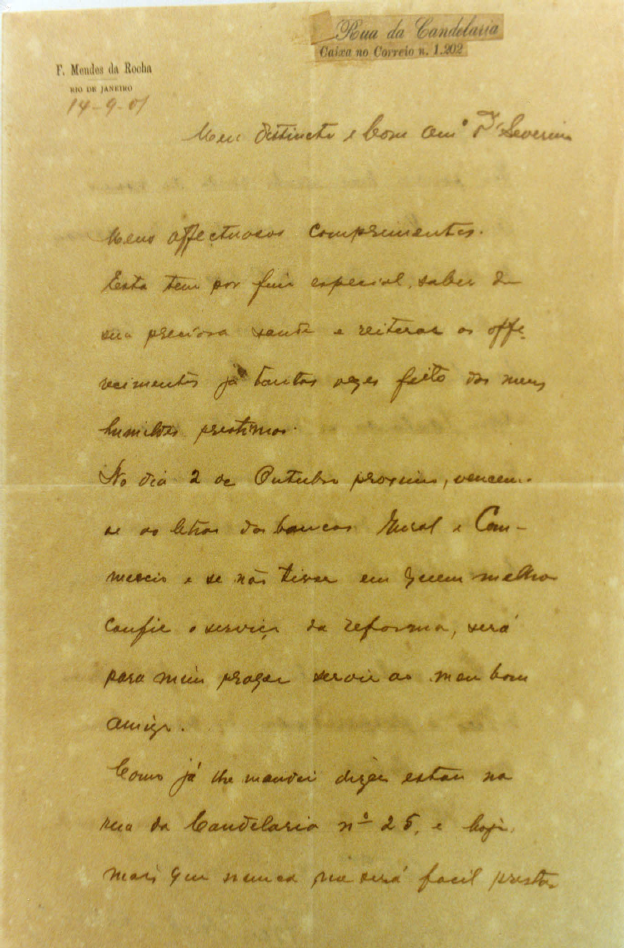 Rua da Candelaria
Caixa no Correio n. 1.202
F. Mendes da Rocha
RIO DE JANEIRO
14-9-01
Meu distincto e bom amº Dr Severino
Meus affectuosos comprimentos.
Esta tem por fim especial, saber de
sua preciosa saude e reiterar os offe-
recimentos já tantas vezes feito dos meus
humildes prestimos.
No dia 2 de Outubro proximo, vencem-
se as letras dos bancos Rural e Com-
mercio e se não tiver em quem melhor
confie o serviço da reforma, será
para mim prazer servir ao meu bom
amigo.
Como já lhe mandei dizer estou na
rua da Candelaria nº 25, e hoje,
mais que nunca me será facil prestar